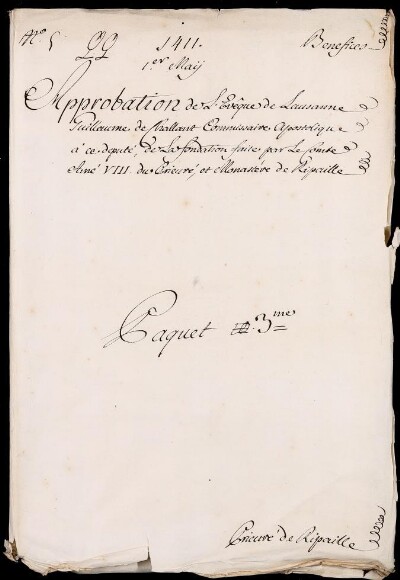 N.º 5 QQ 1411. Benefices
1.er Maij
Approbation de L'Evêque de Lausanne
Guillaume de Challant Commissaire Apostolique
à ce deputé, de La fondation faite par Le Comte
Amé VIII. du Prieuré, et Monastere de Ripaille
Paquet 3.me
Prieuré de Ripaille